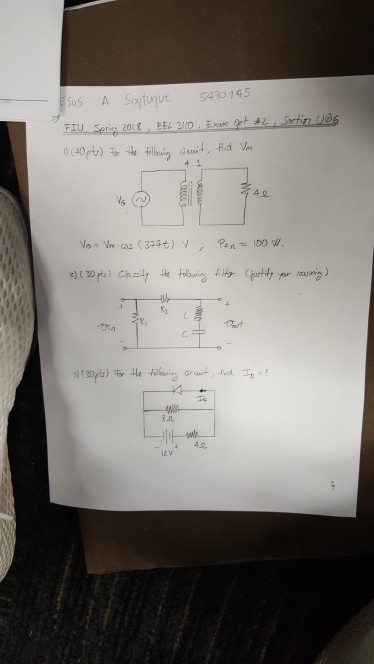 ESUS A Soytuque 5470145
FIU, Spring 2018, EEL 3110, Exam #2, Section U06
1) (40pts) For the following circuit, find Vm
4:1
Vs
4Ω
Vs = Vm cos (377t) V ; P4Ω = 100 W.
2) (30 pts) Classify the following filter (justify your reasoning)
R2
+ +
Vin R1 L Vout
C
- -
3) (30pts) For the following circuit, find ID = ?
ID
8Ω
- + 4Ω
12V